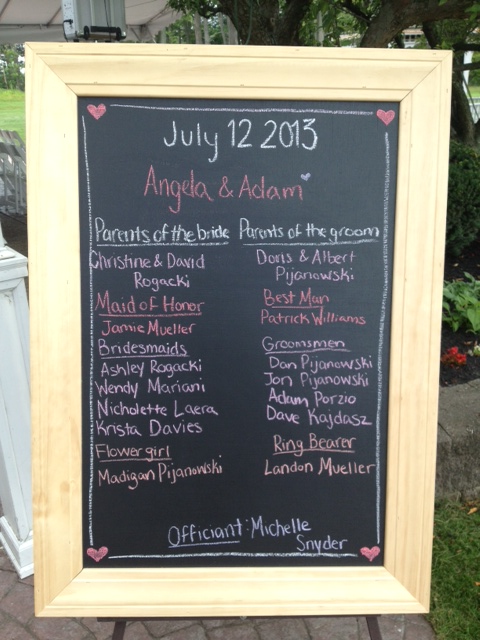 July 12 2013
Angela & Adam
Parents of the bride
Christine & David
Rogacki
Maid of Honor
Jamie Mueller
Bridesmaids
Ashley Rogacki
Wendy Mariani
Nicholette Laera
Krista Davies
Flower girl
Madigan Pijanowski
Parents of the groom
Doris & Albert
Pijanowski
Best Man
Patrick Williams
Groomsmen
Dan Pijanowski
Jon Pijanowski
Adam Porzio
Dave Kajdasz
Ring Bearer
Landon Mueller
Officiant: Michelle
Snyder